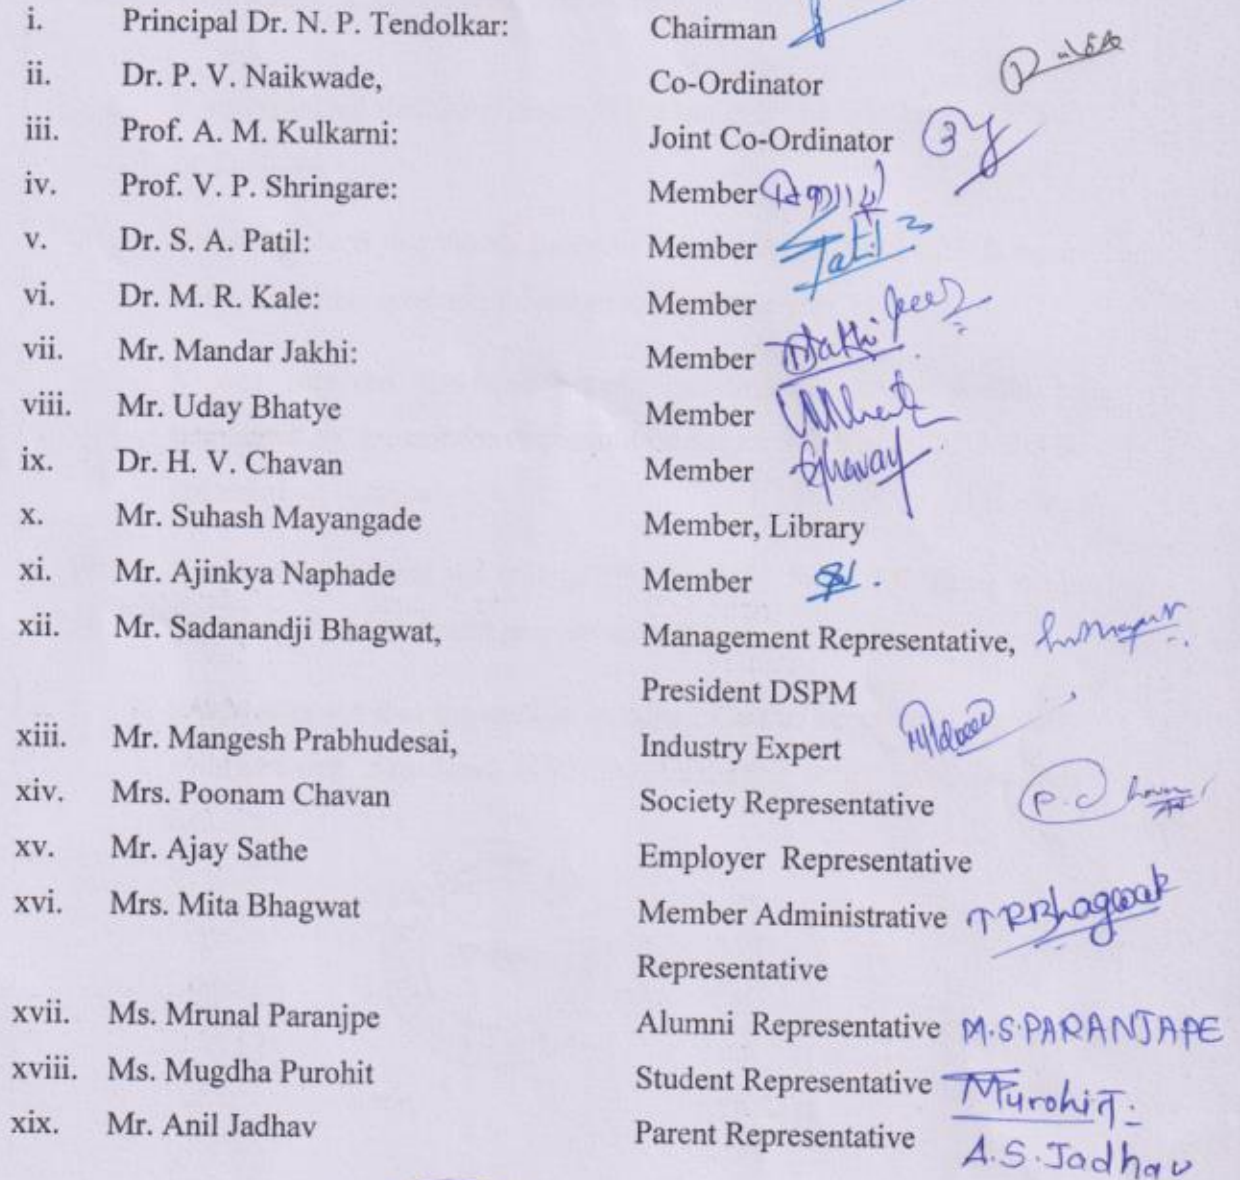 i. Principal Dr. N. P. Tendolkar: Chairman
ii. Dr. P. V. Naikwade, Co-Ordinator
iii. Prof. A. M. Kulkarni: Joint Co-Ordinator
iv. Prof. V. P. Shringare: Member
v. Dr. S. A. Patil: Member Patil
vi. Dr. M. R. Kale: Member
vii. Mr. Mandar Jakhi: Member
viii. Mr. Uday Bhatye Member
ix. Dr. H. V. Chavan Member
x. Mr. Suhash Mayangade Member, Library
xi. Mr. Ajinkya Naphade Member
xii. Mr. Sadanandji Bhagwat, Management Representative,
President DSPM
xiii. Mr. Mangesh Prabhudesai, Industry Expert
xiv. Mrs. Poonam Chavan Society Representative
xv. Mr. Ajay Sathe Employer Representative
xvi. Mrs. Mita Bhagwat Member Administrative
Representative
xvii. Ms. Mrunal Paranjpe Alumni Representative M.S.PARANJAPE
xviii. Ms. Mugdha Purohit Student Representative
xix. Mr. Anil Jadhav Parent Representative A.S.Jadhav